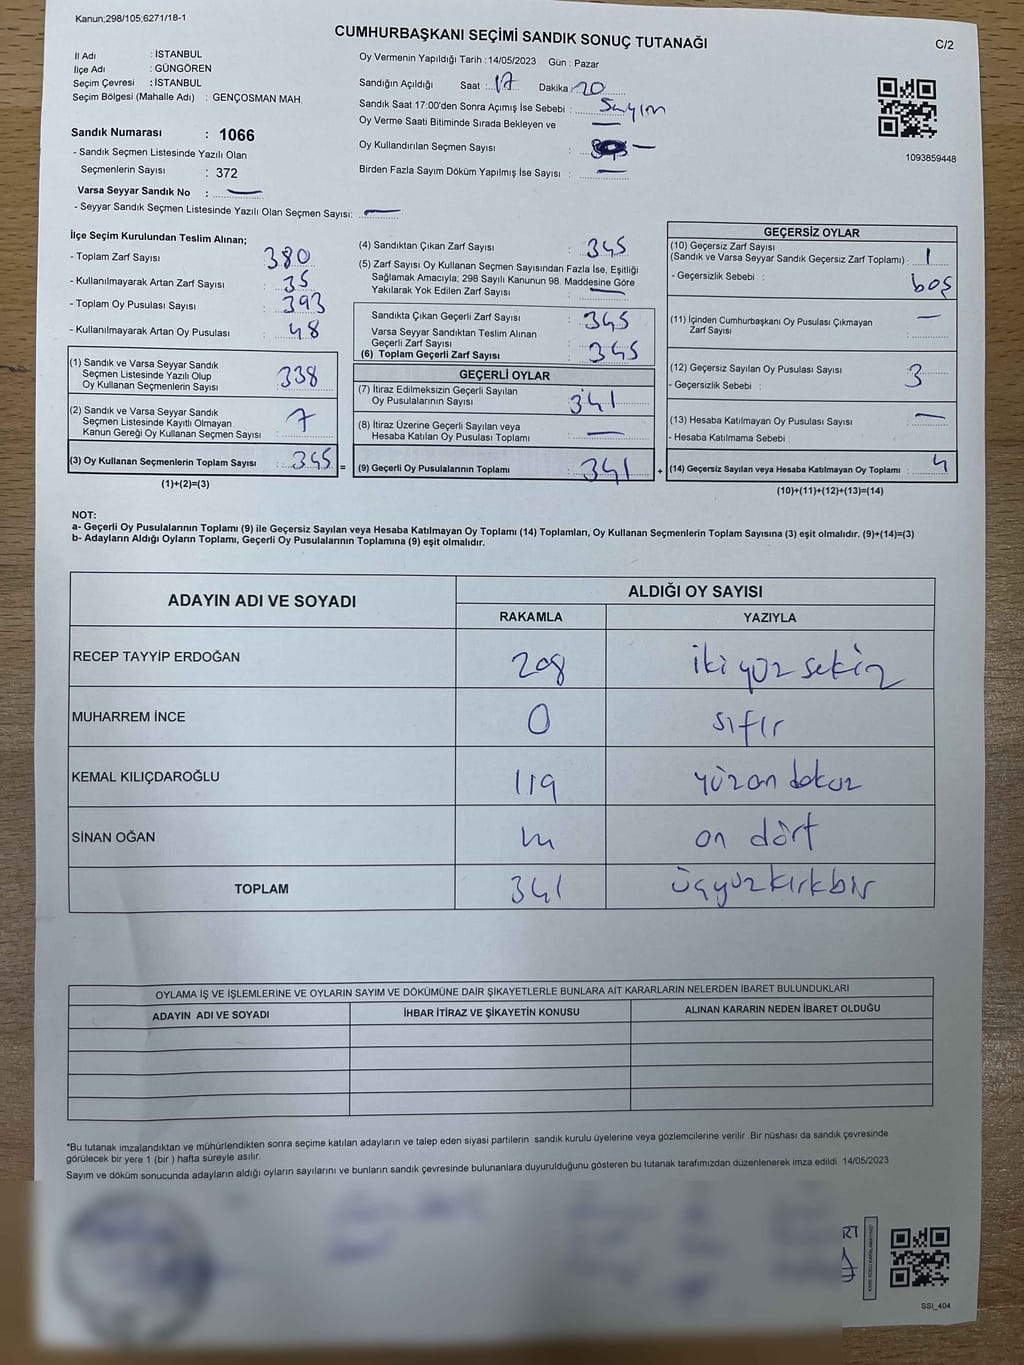 Kanun;298/105,6271/18-1
CUMHURBAŞKANI SEÇİMİ SANDIK SONUÇ TUTANAĞI
C/2
İl Adı : İSTANBUL
İlçe Adı : GÜNGÖREN
Seçim Çevresi : İSTANBUL
Seçim Bölgesi (Mahalle Adı) : GENÇOSMAN MAH.
Sandık Numarası : 1066
- Sandık Seçmen Listesinde Yazılı Olan
Seçmenlerin Sayısı : 372
Varsa Seyyar Sandık No : —
- Seyyar Sandık Seçmen Listesinde Yazılı Olan Seçmen Sayısı: —
Oy Vermenin Yapıldığı Tarih : 14/05/2023 Gün : Pazar
Sandığın Açıldığı Saat : 17 Dakika : 20
Sandık Saat 17:00'den Sonra Açımış İse Sebebi : Sayım
Oy Verme Saati Bitiminde Sırada Bekleyen ve —
Oy Kullandırılan Seçmen Sayısı : —
Birden Fazla Sayım Döküm Yapılmış İse Sayısı : —
1093859448
İlçe Seçim Kurulundan Teslim Alınan;
- Toplam Zarf Sayısı : 380
- Kullanılmayarak Artan Zarf Sayısı : 35
- Toplam Oy Pusulası Sayısı : 393
- Kullanılmayarak Artan Oy Pusulası : 48
(1) Sandık ve Varsa Seyyar Sandık
Seçmen Listesinde Yazılı Olup
Oy Kullanan Seçmenlerin Sayısı : 338
(2) Sandık ve Varsa Seyyar Sandık
Seçmen Listesinde Kayıtlı Olmayan
Kanun Gereği Oy Kullanan Seçmen Sayısı : 7
(3) Oy Kullanan Seçmenlerin Toplam Sayısı : 345 =
(1)+(2)=(3)
(4) Sandıktan Çıkan Zarf Sayısı : 345
(5) Zarf Sayısı Oy Kullanan Seçmen Sayısından Fazla İse, Eşitliği
Sağlamak Amacıyla; 298 Sayılı Kanunun 98. Maddesine Göre
Yakılarak Yok Edilen Zarf Sayısı : —
Sandıkta Çıkan Geçerli Zarf Sayısı : 345
Varsa Seyyar Sandıktan Teslim Alınan
Geçerli Zarf Sayısı :
(6) Toplam Geçerli Zarf Sayısı : 345
GEÇERLİ OYLAR
(7) İtiraz Edilmeksizin Geçerli Sayılan
Oy Pusulalarının Sayısı : 341
(8) İtiraz Üzerine Geçerli Sayılan veya
Hesaba Katılan Oy Pusulası Toplamı : —
(9) Geçerli Oy Pusulalarının Toplamı : 341 +
GEÇERSİZ OYLAR
(10) Geçersiz Zarf Sayısı
(Sandık ve Varsa Seyyar Sandık Geçersiz Zarf Toplamı) : 1
- Geçersizlik Sebebi : boş
(11) İçinden Cumhurbaşkanı Oy Pusulası Çıkmayan —
Zarf Sayısı
(12) Geçersiz Sayılan Oy Pusulası Sayısı : 3
- Geçersizlik Sebebi :
(13) Hesaba Katılmayan Oy Pusulası Sayısı : —
- Hesaba Katılmama Sebebi :
(14) Geçersiz Sayılan veya Hesaba Katılmayan Oy Toplamı : 4
(10)+(11)+(12)+(13)=(14)
NOT:
a- Geçerli Oy Pusulalarının Toplamı (9) ile Geçersiz Sayılan veya Hesaba Katılmayan Oy Toplamı (14) Toplamları, Oy Kullanan Seçmenlerin Toplam Sayısına (3) eşit olmalıdır. (9)+(14)=(3)
b- Adayların Aldığı Oyların Toplamı, Geçerli Oy Pusulalarının Toplamına (9) eşit olmalıdır.
ADAYIN ADI VE SOYADI
ALDIĞI OY SAYISI
RAKAMLA YAZIYLA
RECEP TAYYİP ERDOĞAN 208 iki yüz sekiz
MUHARREM İNCE 0 sıfır
KEMAL KILIÇDAROĞLU 119 yüz on dokuz
SİNAN OĞAN 14 on dört
TOPLAM 341 üçyüzkırkbir
OYLAMA İŞ VE İŞLEMLERİNE VE OYLARIN SAYIM VE DÖKÜMÜNE DAİR ŞİKAYETLERLE BUNLARA AİT KARARLARIN NELERDEN İBARET BULUNDUKLARI
ADAYIN ADI VE SOYADI İHBAR İTİRAZ VE ŞİKAYETİN KONUSU ALINAN KARARIN NEDEN İBARET OLDUĞU
*Bu tutanak imzalandıktan ve mühürlendikten sonra seçime katılan adayların ve talep eden siyasi partilerin sandık kurulu üyelerine veya gözlemcilerine verilir .Bir nüshası da sandık çevresinde
görülecek bir yere 1 (bir ) hafta süreyle asılır.
Sayım ve döküm sonucunda adayların aldığı oyların sayılarını ve bunların sandık çevresinde bulunanlara duyurulduğunu gösteren bu tutanak tarafımızdan düzenlenerek imza edildi. 14/05/2023
SSI_404